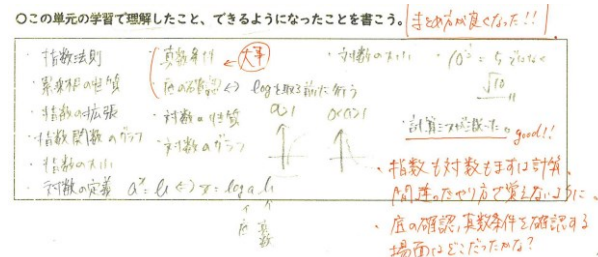 ○この単元の学習で理解したこと、できるようになったことを書こう。
まとめ方が良くなった!!
・指数法則
・累乗根の性質
・指数の拡張
・指数関数のグラフ
・指数の大小
・対数の定義 a^x = b ⇔ x = log a b
↑底 ↑真数
・真数条件
大事
・底の確認 ⇔ logを取る前に行う
・対数の性質
・対数のグラフ
a>1 0<a>1
・対数の大小
・10^{1/2} = 5 ではなく
√10
・計算ミスが減った。
good!!
・指数も対数もまずは計算。
間違ったやり方で覚えないように。
・底の確認、真数条件を確認する
場面はどこだったかな?